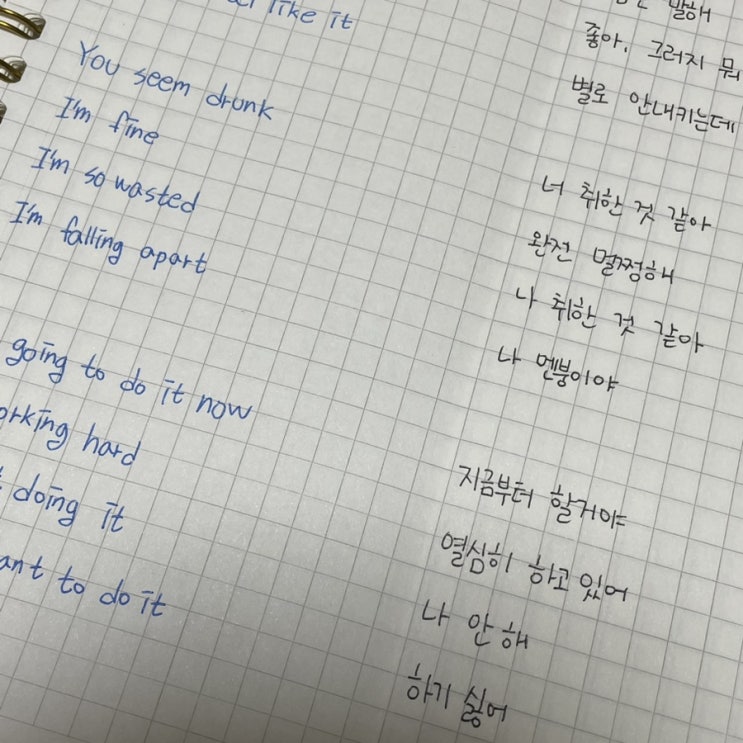 like it
You seem drunk
I'm fine
I'm so wasted
I'm falling apart
going to do it now
hard
doing it
to do it
말해
좋아. 그러지 뭐
별로 안내키는데
너 취한 것 같아
완전 멀쩡해
나 취한 것 같아
나 멘붕이야
지금부터 할거야
열심히 하고 있어
나 안 해
하기 싫어